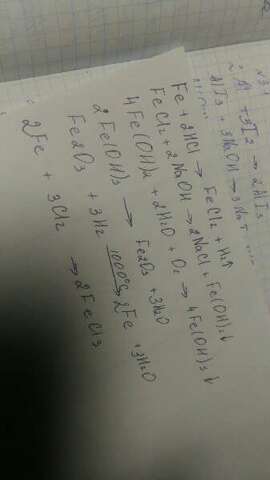 2Al + 3I2 → 2AlI3
AlI3 + 3NaOH → 3NaI + ....
Fe + 2HCl → FeCl2 + H2↑
FeCl2 + 2NaOH → 2NaCl + Fe(OH)2↓
4Fe(OH)2 + 2H2O + O2 → 4Fe(OH)3↓
2Fe(OH)3 → Fe2O3 + 3H2O
Fe2O3 + 3H2 1000°C→ 2Fe + 3H2O
2Fe + 3Cl2 → 2FeCl3